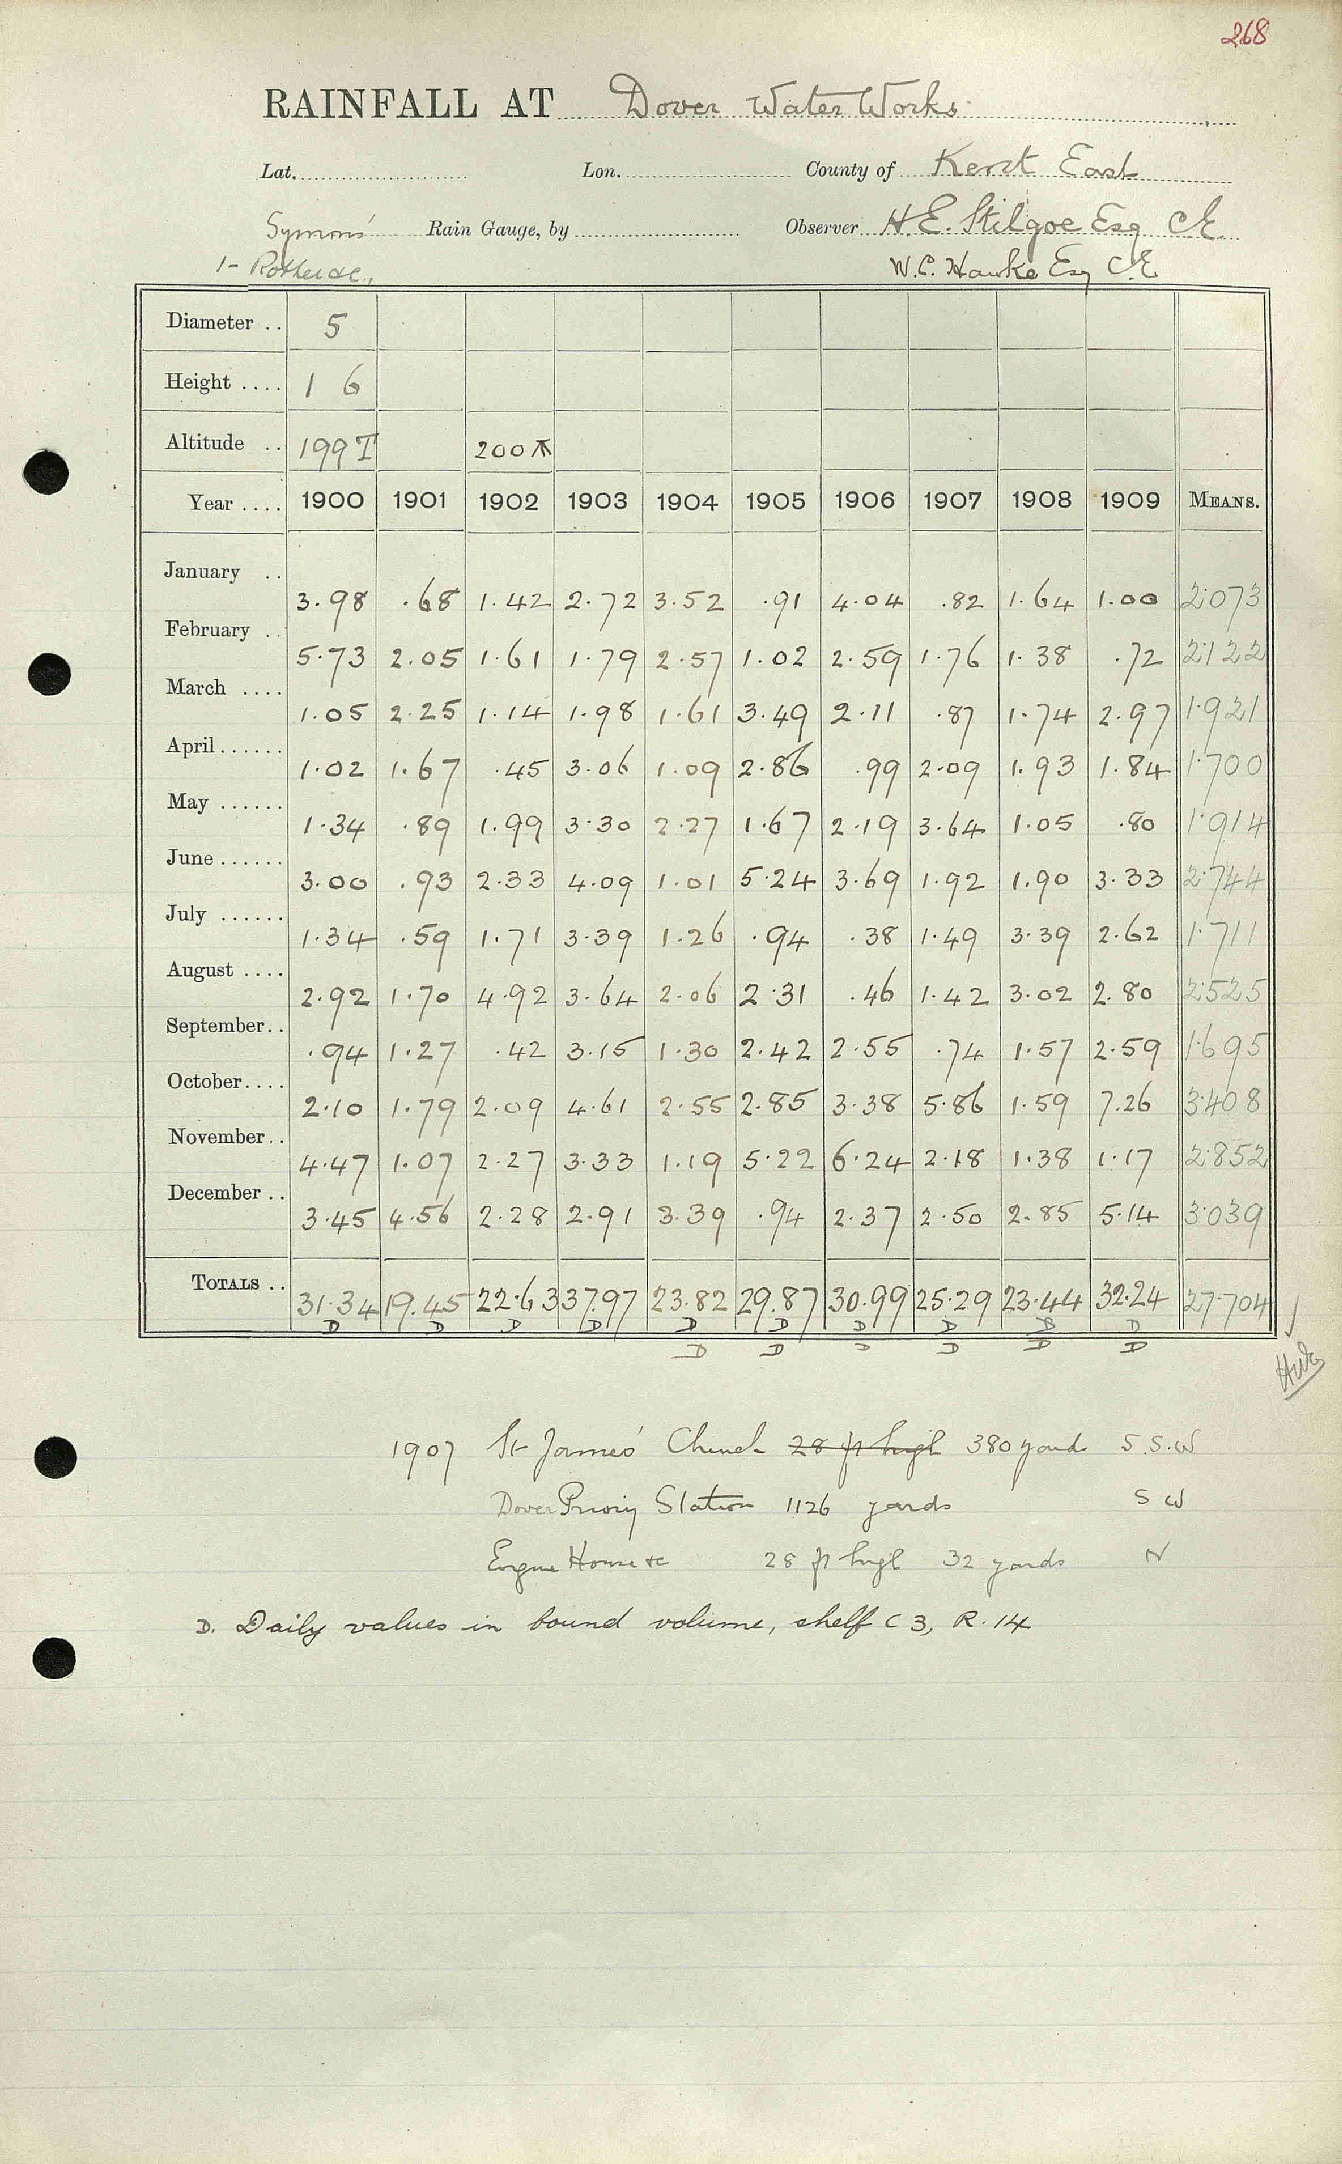 268
RAINFALL AT Dover Water Works
Lat. Lon. County of Kent East
Symons' Rain Gauge, by Observer H.E. Stilgoe Esq CE
W.C. Hawke Esq CE
Diameter .. 5
Height .... 1 6
Altitude .. 199 T 200
Year .... 1900 1901 1902 1903 1904 1905 1906 1907 1908 1909 MEANS.
January .. 3.98 .68 1.42 2.72 3.52 .91 4.04 .82 1.64 1.00 2.073
February .. 5.73 2.05 1.61 1.79 2.57 1.02 2.59 1.76 1.38 .72 2.122
March .... 1.05 2.25 1.14 1.98 1.61 3.49 2.11 .87 1.74 2.97 1.921
April ...... 1.02 1.67 .45 3.06 1.09 2.86 .99 2.09 1.93 1.84 1.700
May ...... 1.34 .89 1.99 3.30 2.27 1.67 2.19 3.64 1.05 .80 1.914
June ...... 3.00 .93 2.33 4.09 1.01 5.24 3.69 1.92 1.90 3.33 2.744
July ...... 1.34 .59 1.71 3.39 1.26 .94 .38 1.49 3.39 2.62 1.711
August .... 2.92 1.70 4.92 3.64 2.06 2.31 .46 1.42 3.02 2.80 2.525
September .. .94 1.27 .42 3.15 1.30 2.42 2.55 .74 1.57 2.59 1.695
October .... 2.10 1.79 2.09 4.61 2.55 2.85 3.38 5.86 1.59 7.26 3.408
November .. 4.47 1.07 2.27 3.33 1.19 5.22 6.24 2.18 1.38 1.17 2.852
December .. 3.45 4.56 2.28 2.91 3.39 .94 2.37 2.50 2.85 5.14 3.039
TOTALS .. 31.34 19.45 22.63 37.97 23.82 29.87 30.99 25.29 23.44 32.24 27.704
D D D D D D D D B D
D D D D D D
1907 St James' Church 28 ft high 380 yards S.S.W
Dover Priory Station 1126 yards S W
Engine House &c 28 ft high 32 yards N
D. Daily values in bound volume, shelf C 3, R. 14